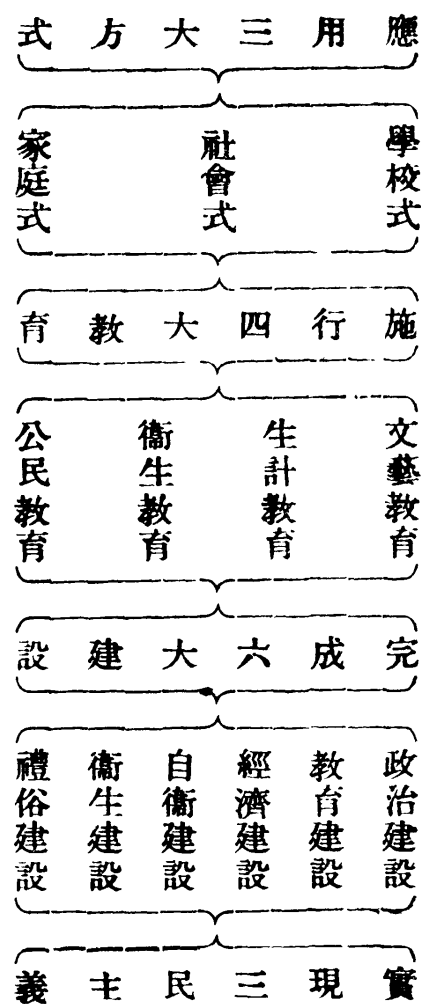 應用三大方式
學校式
社會式
家庭式
施行四大教育
文藝教育
生計教育
衞生教育
公民教育
完成六大建設
政治建設
教育建設
經濟建設
自衞建設
衞生建設
禮俗建設
實現三民主義